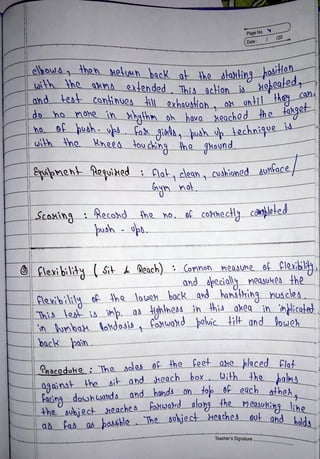 Page No.
Date: / /20
elbows, then return back at the starting position
with the arms extended. This action is repeated,
and test continues till exhaustion, or until they can,
do no more in rhythm or have reached the target
no. of push-ups. For girls, push up technique is
with the knees touching the ground.
Equipment Required : Flat, clean, cushioned surface/
Gym mat.
Scoring : Record the no. of correctly completed
push - ups.
Flexibility ( Sit & Reach) : Common measure of flexibility,
and specially measures the
flexibility of the lower back and hamstring muscles.
This test is imp. as tightness in this area in implicated
in lumbar lordosis, forward pelvic tilt and lower
back pain.
Procedure : The soles of the feet are placed flat
against the sit and reach box. With the palms
facing downwards and hands on top of each other,
the subject reaches forward along the measuring line
as far as possible. The subject reaches out and holds
Teacher's Signature